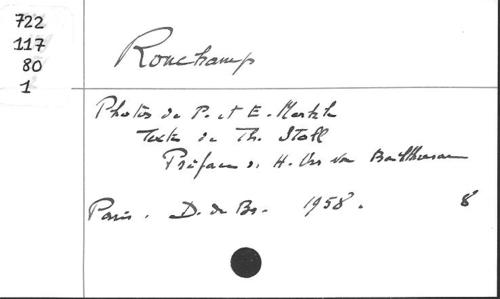 722
117
80
1
Ronchamp
Photos de P. et E. Merkle
Texte de Th. Stoll
Préface d. H. Urs von Balthasar
Paris. D. de Br. 1958. 8